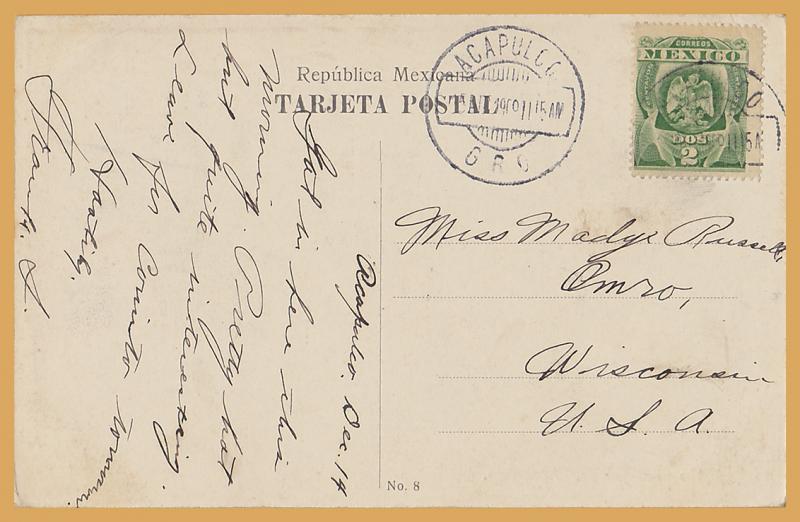 República Mexicana
TARJETA POSTAL
ACAPULCO
1909 11 15 AM
GRO
CORREOS
MEXICO
DOS
2
Acapulco. Dec. 14
Got in here this
morning. Pretty hot
but quite interesting.
Leave for Corinto tomorrow.
Hastily.
Frank S.
Miss Madge Russell,
Omro,
Wisconsin
U. S. A.
No. 8